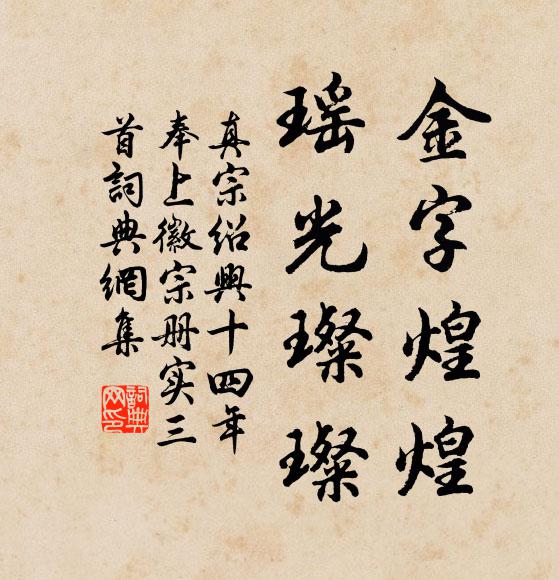 金字煌煌
瑶光璨璨
真宗绍興十四年
奉上徽宗册实三
首詞典網集
詞典
网印